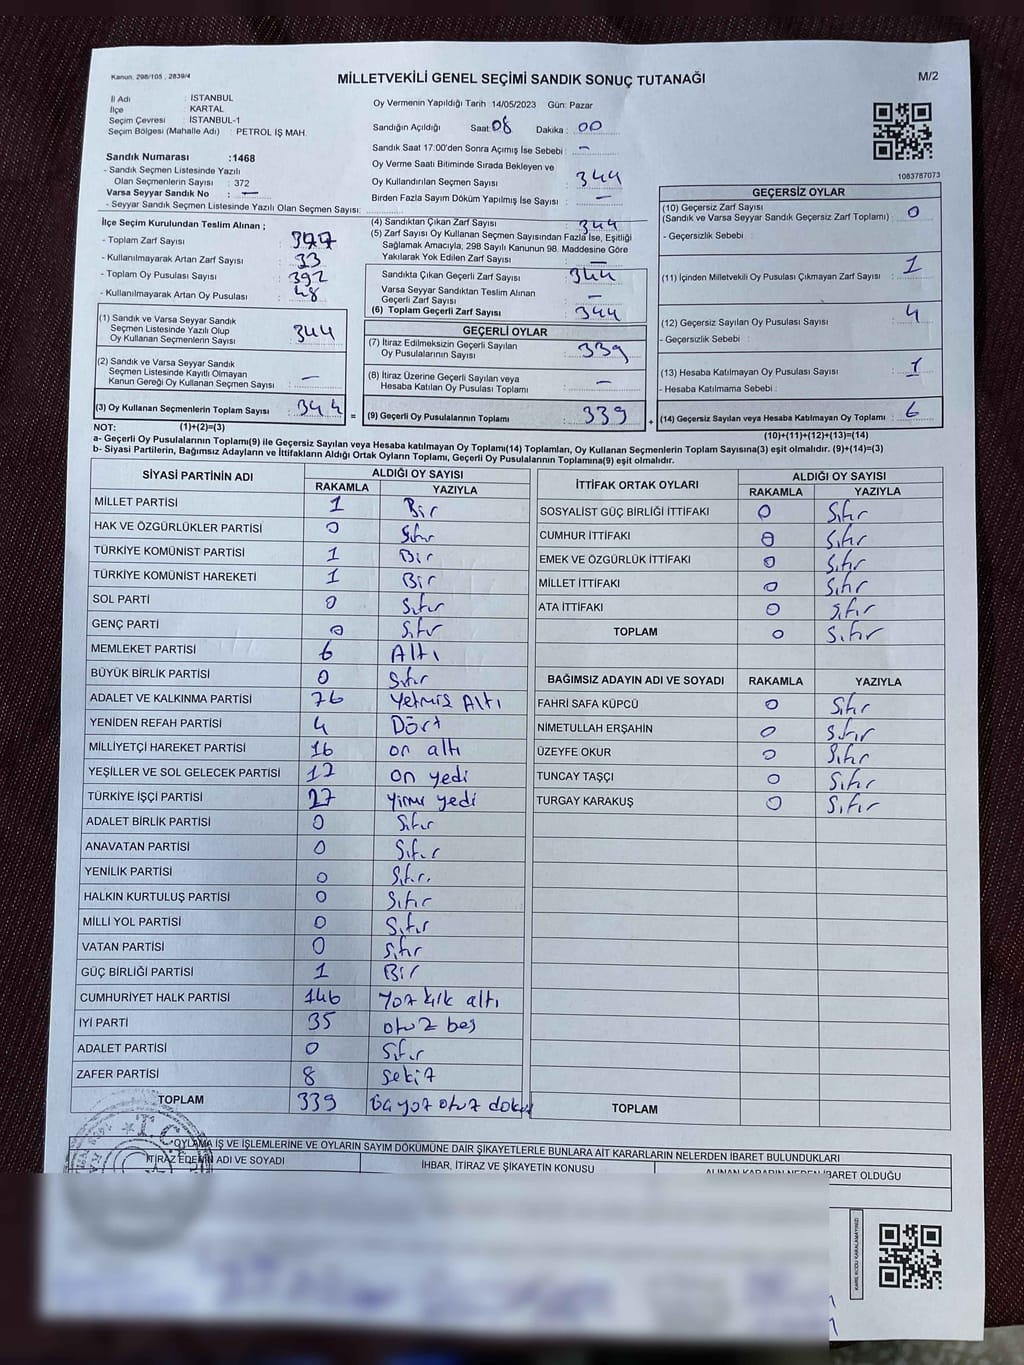 Kanun. 298/105 , 2839/4
MİLLETVEKİLİ GENEL SEÇİMİ SANDIK SONUÇ TUTANAĞI
M/2
İl Adı : İSTANBUL
İlçe : KARTAL
Seçim Çevresi : İSTANBUL-1
Seçim Bölgesi (Mahalle Adı) : PETROL İŞ MAH.
Sandık Numarası :1468
- Sandık Seçmen Listesinde Yazılı
Olan Seçmenlerin Sayısı : 372
Varsa Seyyar Sandık No : —
- Seyyar Sandık Seçmen Listesinde Yazılı Olan Seçmen Sayısı:
Oy Vermenin Yapıldığı Tarih 14/05/2023 Gün: Pazar
Sandığın Açıldığı Saat: 08 Dakika : 00
Sandık Saat 17:00'den Sonra Açımış İse Sebebi : —
Oy Verme Saati Bitiminde Sırada Bekleyen ve
Oy Kullandırılan Seçmen Sayısı : 344
Birden Fazla Sayım Döküm Yapılmış İse Sayısı : —
1083787073
İlçe Seçim Kurulundan Teslim Alınan ;
- Toplam Zarf Sayısı : 377
- Kullanılmayarak Artan Zarf Sayısı : 33
- Toplam Oy Pusulası Sayısı : 392
- Kullanılmayarak Artan Oy Pusulası : 48
(1) Sandık ve Varsa Seyyar Sandık
Seçmen Listesinde Yazılı Olup
Oy Kullanan Seçmenlerin Sayısı : 344
(2) Sandık ve Varsa Seyyar Sandık
Seçmen Listesinde Kayıtlı Olmayan
Kanun Gereği Oy Kullanan Seçmen Sayısı : —
(3) Oy Kullanan Seçmenlerin Toplam Sayısı : 344
(4) Sandıktan Çıkan Zarf Sayısı : 344
(5) Zarf Sayısı Oy Kullanan Seçmen Sayısından Fazla İse, Eşitliği
Sağlamak Amacıyla, 298 Sayılı Kanunun 98. Maddesine Göre
Yakılarak Yok Edilen Zarf Sayısı : —
Sandıkta Çıkan Geçerli Zarf Sayısı : 344
Varsa Seyyar Sandıktan Teslim Alınan
Geçerli Zarf Sayısı : —
(6) Toplam Geçerli Zarf Sayısı : 344
GEÇERLİ OYLAR
(7) İtiraz Edilmeksizin Geçerli Sayılan
Oy Pusulalarının Sayısı : 339
(8) İtiraz Üzerine Geçerli Sayılan veya
Hesaba Katılan Oy Pusulası Toplamı : —
= (9) Geçerli Oy Pusulalarının Toplamı : 339
GEÇERSİZ OYLAR
(10) Geçersiz Zarf Sayısı
(Sandık ve Varsa Seyyar Sandık Geçersiz Zarf Toplamı) : 0
- Geçersizlik Sebebi :
(11) İçinden Milletvekili Oy Pusulası Çıkmayan Zarf Sayısı : 1
(12) Geçersiz Sayılan Oy Pusulası Sayısı : 4
- Geçersizlik Sebebi :
(13) Hesaba Katılmayan Oy Pusulası Sayısı : 1
- Hesaba Katılmama Sebebi :
+ (14) Geçersiz Sayılan veya Hesaba Katılmayan Oy Toplamı : 6
NOT: (1)+(2)=(3)
(10)+(11)+(12)+(13)=(14)
a- Geçerli Oy Pusulalarının Toplamı(9) ile Geçersiz Sayılan veya Hesaba katılmayan Oy Toplamı(14) Toplamları, Oy Kullanan Seçmenlerin Toplam Sayısına(3) eşit olmalıdır. (9)+(14)=(3)
b- Siyasi Partilerin, Bağımsız Adayların ve İttifakların Aldığı Ortak Oyların Toplamı, Geçerli Oy Pusulalarının Toplamına(9) eşit olmalıdır.
SİYASİ PARTİNİN ADI ALDIĞI OY SAYISI
RAKAMLA YAZIYLA
MİLLET PARTİSİ 1 Bir
HAK VE ÖZGÜRLÜKLER PARTİSİ 0 Sıfır
TÜRKİYE KOMÜNİST PARTİSİ 1 Bir
TÜRKİYE KOMÜNİST HAREKETİ 1 Bir
SOL PARTİ 0 Sıfır
GENÇ PARTİ 0 Sıfır
MEMLEKET PARTİSİ 6 Altı
BÜYÜK BİRLİK PARTİSİ 0 Sıfır
ADALET VE KALKINMA PARTİSİ 76 Yetmiş Altı
YENİDEN REFAH PARTİSİ 4 Dört
MİLLİYETÇİ HAREKET PARTİSİ 16 on altı
YEŞİLLER VE SOL GELECEK PARTİSİ 17 on yedi
TÜRKİYE İŞÇİ PARTİSİ 27 yirmi yedi
ADALET BİRLİK PARTİSİ 0 Sıfır
ANAVATAN PARTİSİ 0 Sıfır
YENİLİK PARTİSİ 0 Sıfır.
HALKIN KURTULUŞ PARTİSİ 0 Sıfır
MİLLİ YOL PARTİSİ 0 Sıfır
VATAN PARTİSİ 0 Sıfır
GÜÇ BİRLİĞİ PARTİSİ 1 Bir
CUMHURİYET HALK PARTİSİ 146 Yüz kırk altı
İYİ PARTİ 35 otuz beş
ADALET PARTİSİ 0 Sıfır
ZAFER PARTİSİ 8 Sekiz
TOPLAM 339 üç yüz otuz dokuz
İTTİFAK ORTAK OYLARI ALDIĞI OY SAYISI
RAKAMLA YAZIYLA
SOSYALİST GÜÇ BİRLİĞİ İTTİFAKI 0 Sıfır
CUMHUR İTTİFAKI 0 Sıfır
EMEK VE ÖZGÜRLÜK İTTİFAKI 0 Sıfır
MİLLET İTTİFAKI 0 Sıfır
ATA İTTİFAKI 0 Sıfır
TOPLAM 0 Sıfır
BAĞIMSIZ ADAYIN ADI VE SOYADI RAKAMLA YAZIYLA
FAHRİ SAFA KÜPCÜ 0 Sıfır
NİMETULLAH ERŞAHİN 0 Sıfır
ÜZEYFE OKUR 0 Sıfır
TUNCAY TAŞÇI 0 Sıfır
TURGAY KARAKUŞ 0 Sıfır
TOPLAM
T.C.
OYLAMA İŞ VE İŞLEMLERİNE VE OYLARIN SAYIM DÖKÜMÜNE DAİR ŞİKAYETLERLE BUNLARA AİT KARARLARIN NELERDEN İBARET BULUNDUKLARI
İTİRAZ EDENİN ADI VE SOYADI İHBAR, İTİRAZ VE ŞİKAYETİN KONUSU ALINAN KARARIN NEDEN İBARET OLDUĞU
KARE KODU KARALAMAYINIZ!